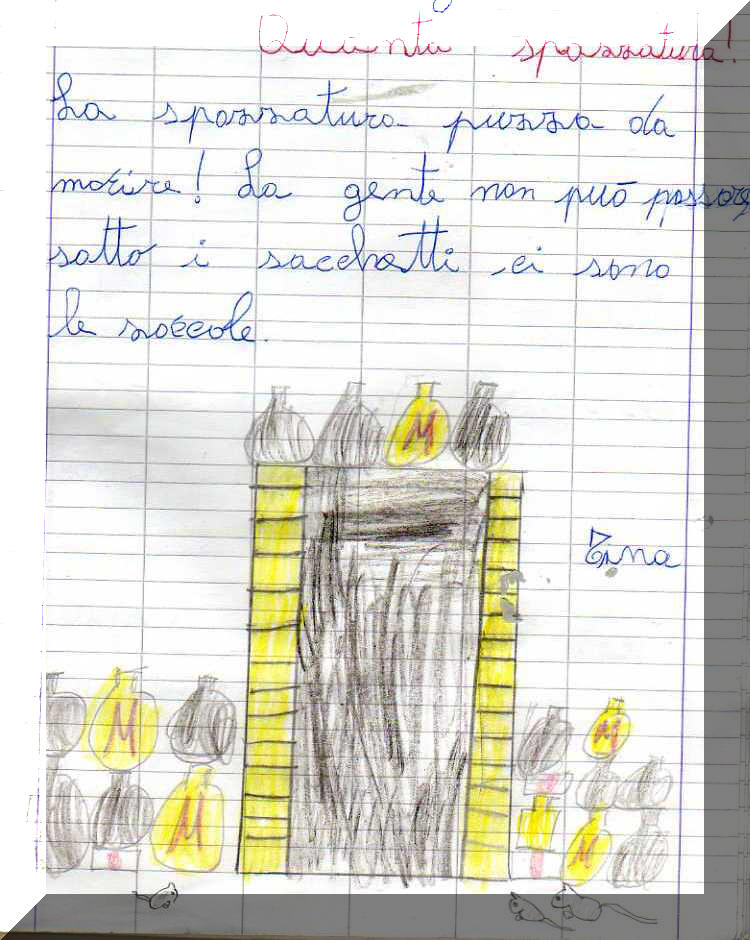 Quanta spazzatura!
La spazzatura puzza da
morire! La gente non può passare
sotto i sacchetti ci sono
le zoccole.
M
Tina
M
M
M
M
M